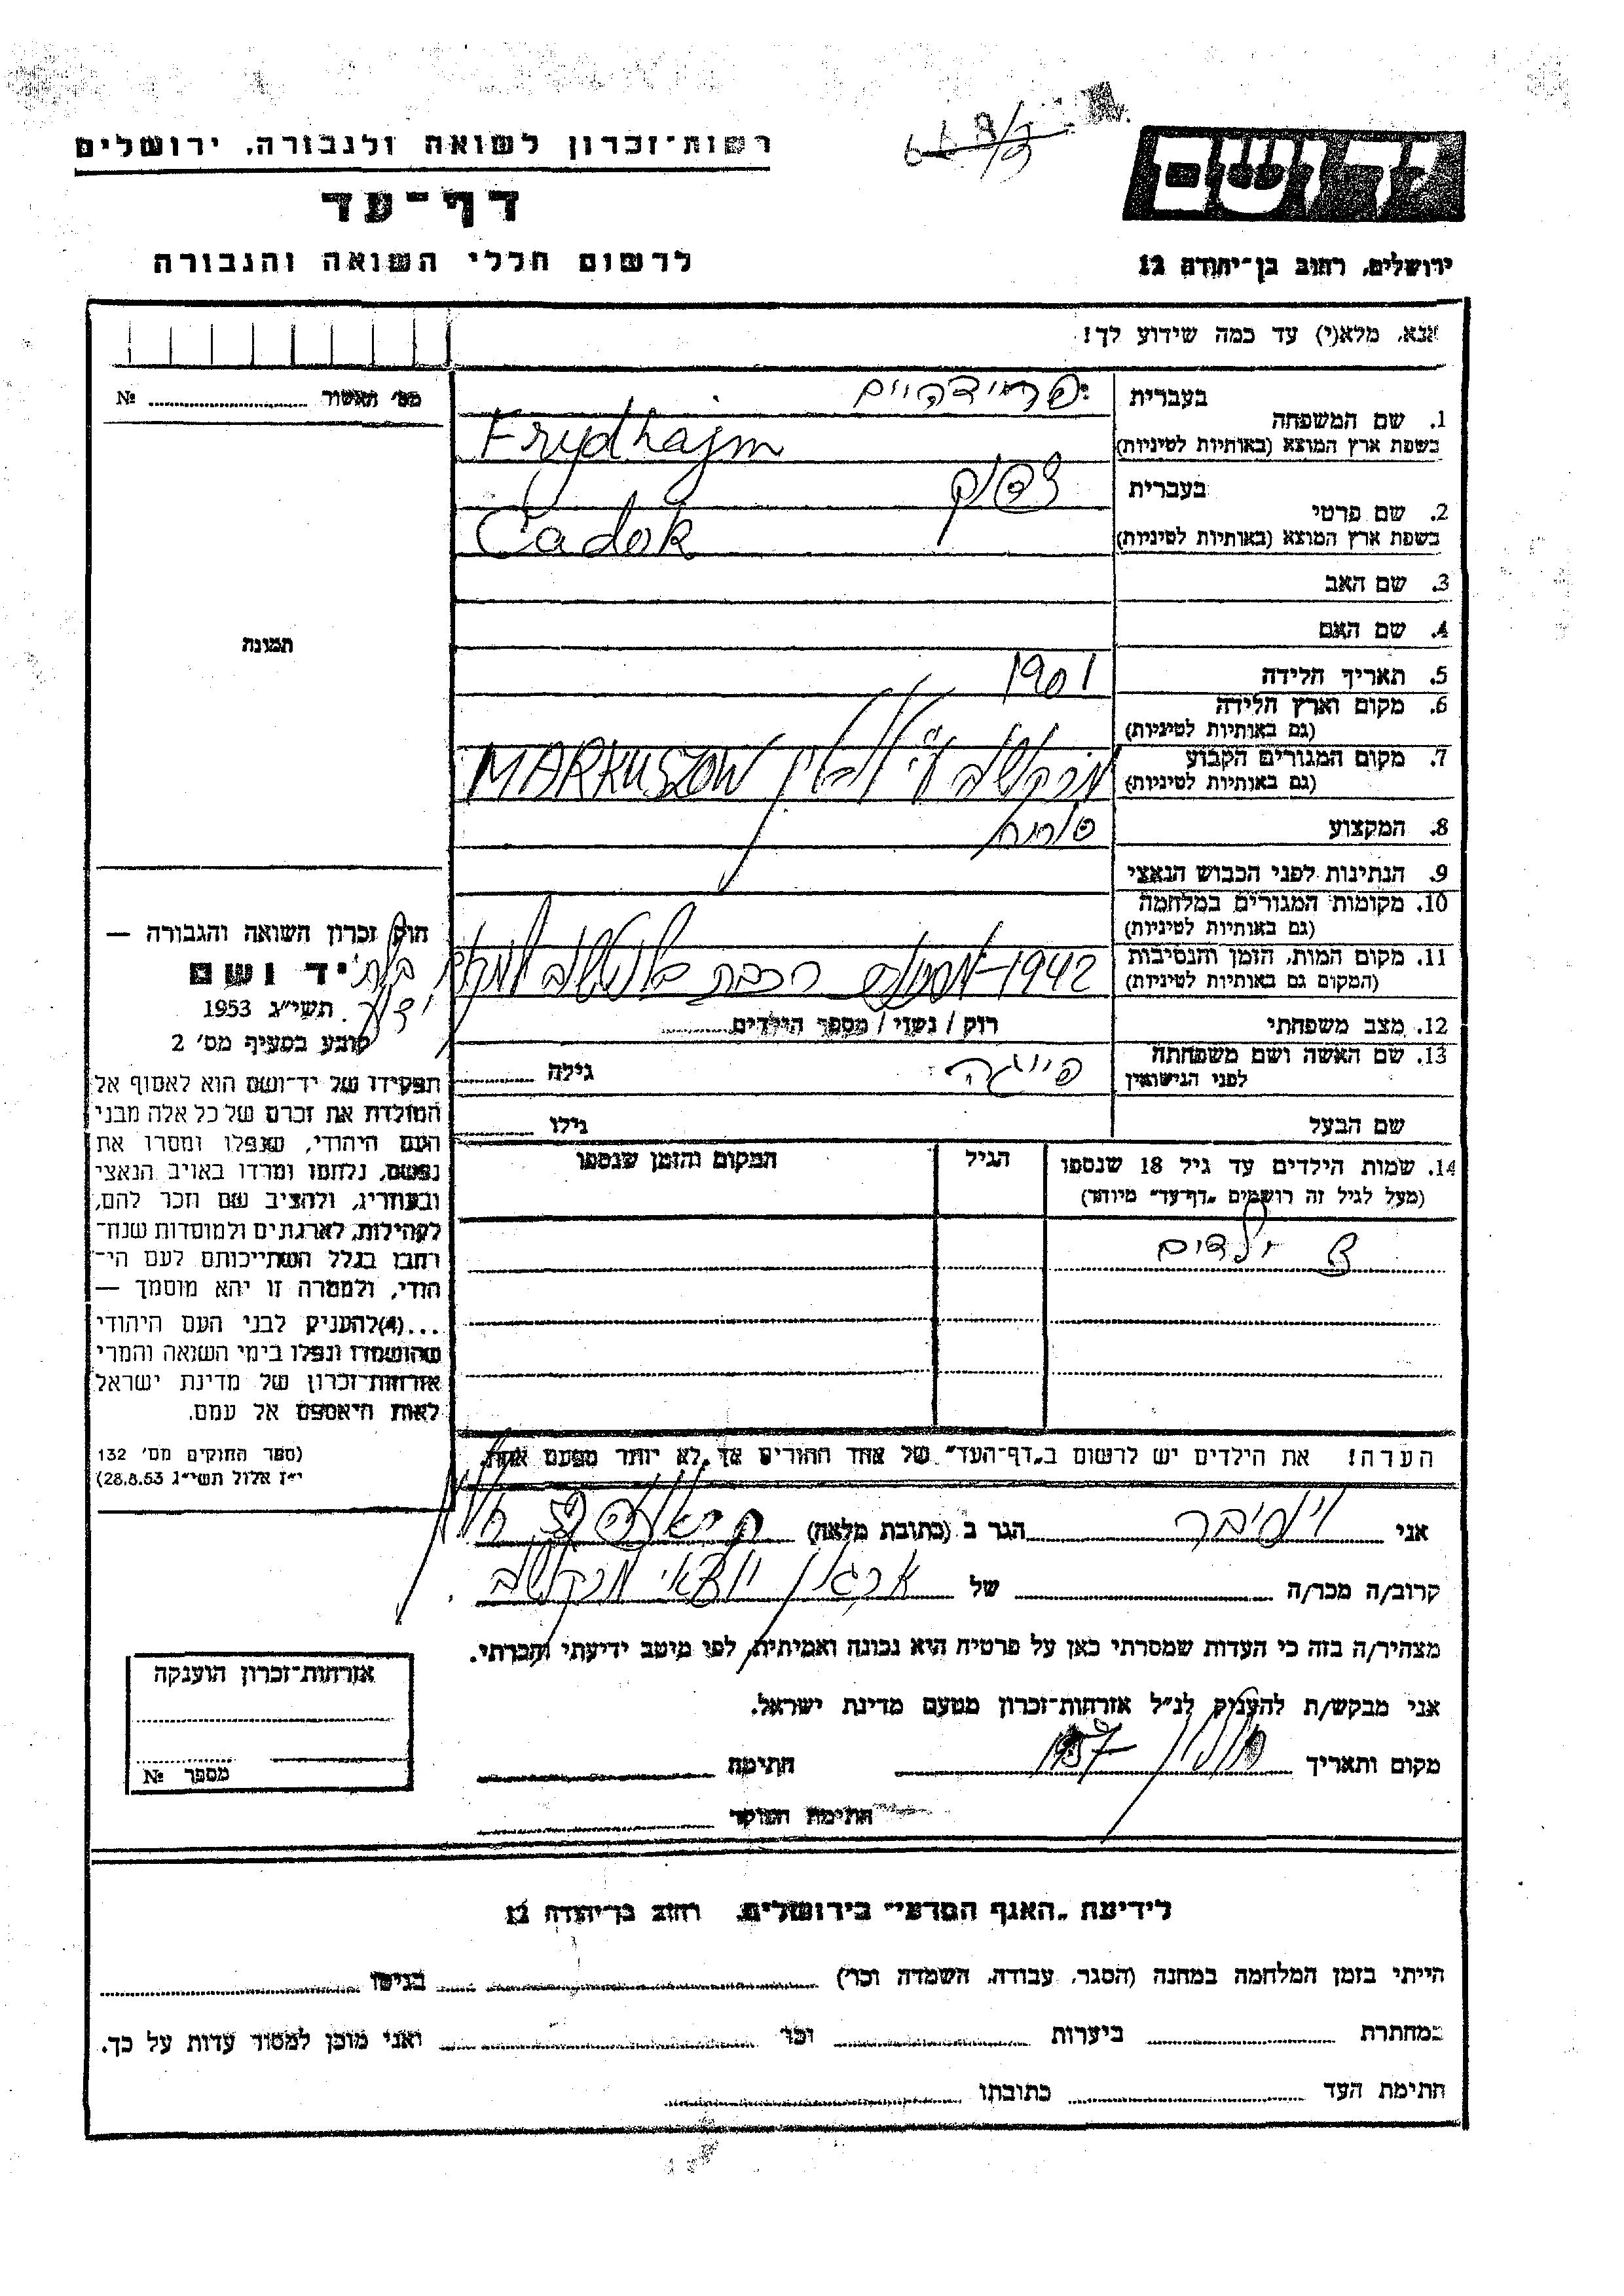 רשות־זכרון לשואה ולגבורה, ירושלים
יד ושם
דף־עד
לרשום חללי השואה והגבורה
ירושלים, רחוב בן־יהודה 12
אנא, מלא(י) עד כמה שידוע לך!
מס' תאשור №
1. שם המשפחה
בעברית פרידהיים
בשפת ארץ המוצא (באותיות לטיניות) Frydhajm
2. שם פרטי
בעברית צדוק
בשפת ארץ המוצא (באותיות לטיניות) Cadok
3. שם האב
4. שם האם
תמונה
5. תאריך הלידה 1901
6. מקום וארץ הלידה
(גם באותיות לטיניות)
7. מקום המגורים הקבוע
(גם באותיות לטיניות) מרקושוב ע"י לובלין MARKUSZOW
8. המקצוע סוחר
9. הנתינות לפני הכבוש הנאצי
10. מקומות המגורים במלחמה
(גם באותיות לטיניות)
11. מקום המות, הזמן והנסיבות
(המקום גם באותיות לטיניות) 1942 רכבת בלתי ידוע
12. מצב משפחתי רווק / נשוי / מספר הילדים
13. שם האשה ושם משפחתה
לפני הנישואין פייגה גילה
שם הבעל גילו
14. שמות הילדים עד גיל 18 שנספו
(מעל לגיל זה רושמים "דף־עד" מיוחד)
הגיל
המקום והזמן שנספו
ילדים
חוק זכרון השואה והגבורה —
יד ושם
תשי"ג 1953
קובע בסעיף מס' 2
תפקידו של יד־ושם הוא לאסוף אל
המולדת את זכרם של כל אלה מבני
העם היהודי, שנפלו ומסרו את
נפשם, נלחמו ומרדו באויב הנאצי
ובעוזריו, ולהציב שם וזכר להם,
לקהילות, לארגונים ולמוסדות שנח־
רבו בגלל השתייכותם לעם הי־
הודי, ולמטרה זו יהא מוסמך —
...(4)להעניק לבני העם היהודי
שהושמדו ונפלו בימי השואה והמרי
אזרחות־זכרון של מדינת ישראל
לאות היאספם אל עמם.
(ספר החוקים מס' 132
י"ז אלול תשי"ג 28.8.53)
הערה! את הילדים יש לרשום ב"דף־העד" של אחד ההורים אך לא יותר מפעם אחת.
אני וינריבר הגר ב (כתובת מלאה)
קרוב/ה מכר/ה של ארגון יוצאי מרקושוב
מצהיר/ה בזה כי העדות שמסרתי כאן על פרטיה היא נכונה ואמיתית, לפי מיטב ידיעתי והכרתי.
אני מבקש/ת להעניק לנ"ל אזרחות־זכרון מטעם מדינת ישראל.
מקום ותאריך חולון 1957 חתימה
חתימת הפוקד
אזרחות־זכרון הוענקה
מספר №
לידיעת "האגף המדעי" בירושלים, רחוב בן־יהודה 12
הייתי בזמן המלחמה במחנה (הסגר, עבודה, השמדה וכו') בגיטו
במחתרת ביערות וכו' ואני מוכן למסור עדות על כך.
חתימת העד כתובתו